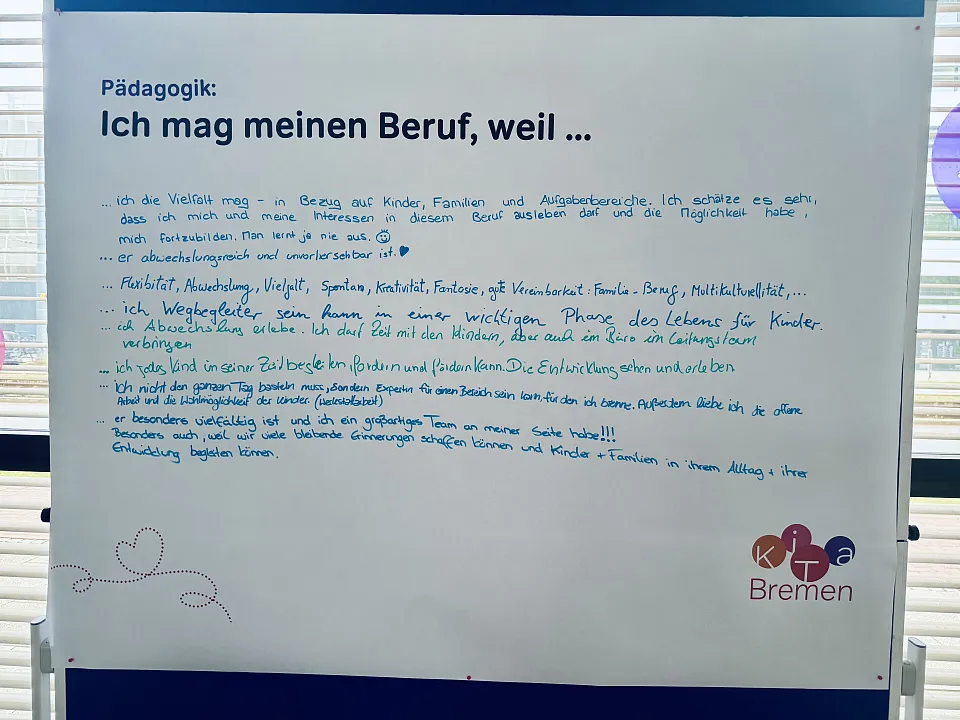 Pädagogik:
Ich mag meinen Beruf, weil ...
... ich die Vielfalt mag - in Bezug auf Kinder, Familien und Aufgabenbereiche. Ich schätze es sehr,
dass ich mich und meine Interessen in diesem Beruf ausleben darf und die Möglichkeit habe,
mich fortzubilden. Man lernt ja nie aus. ☺
... er abwechslungsreich und unvorhersehbar ist. ♥
... Flexibität, Abwechslung, Vielfalt, Spontan, Kreativität, Fantasie, gute Vereinbarkeit: Familie - Beruf, Multikulturellität,...
... ich Wegbegleiter sein kann in einer wichtigen Phase des Lebens für Kinder.
... ich Abwechslung erlebe. Ich darf Zeit mit den Kindern, aber auch im Büro im Leitungsteam
verbringen
... ich jedes Kind in seiner Zeit begleiten fordern und fördern kann. Die Entwicklung sehen und erleben
... ich nicht den ganzen Tag basteln muss, sondern Expertin für einen Bereich sein kann, für den ich brenne. Außerdem liebe ich die offene
Arbeit und die Wahlmöglichkeit der Kinder. (Werkstattarbeit)
... er besonders vielfältig ist und ich ein großartiges Team an meiner Seite habe!!!
Besonders auch, weil wir viele bleibende Erinnerungen schaffen können und Kinder + Familien in ihrem Alltag + ihrer
Entwicklung begleiten können.
KiTa
Bremen